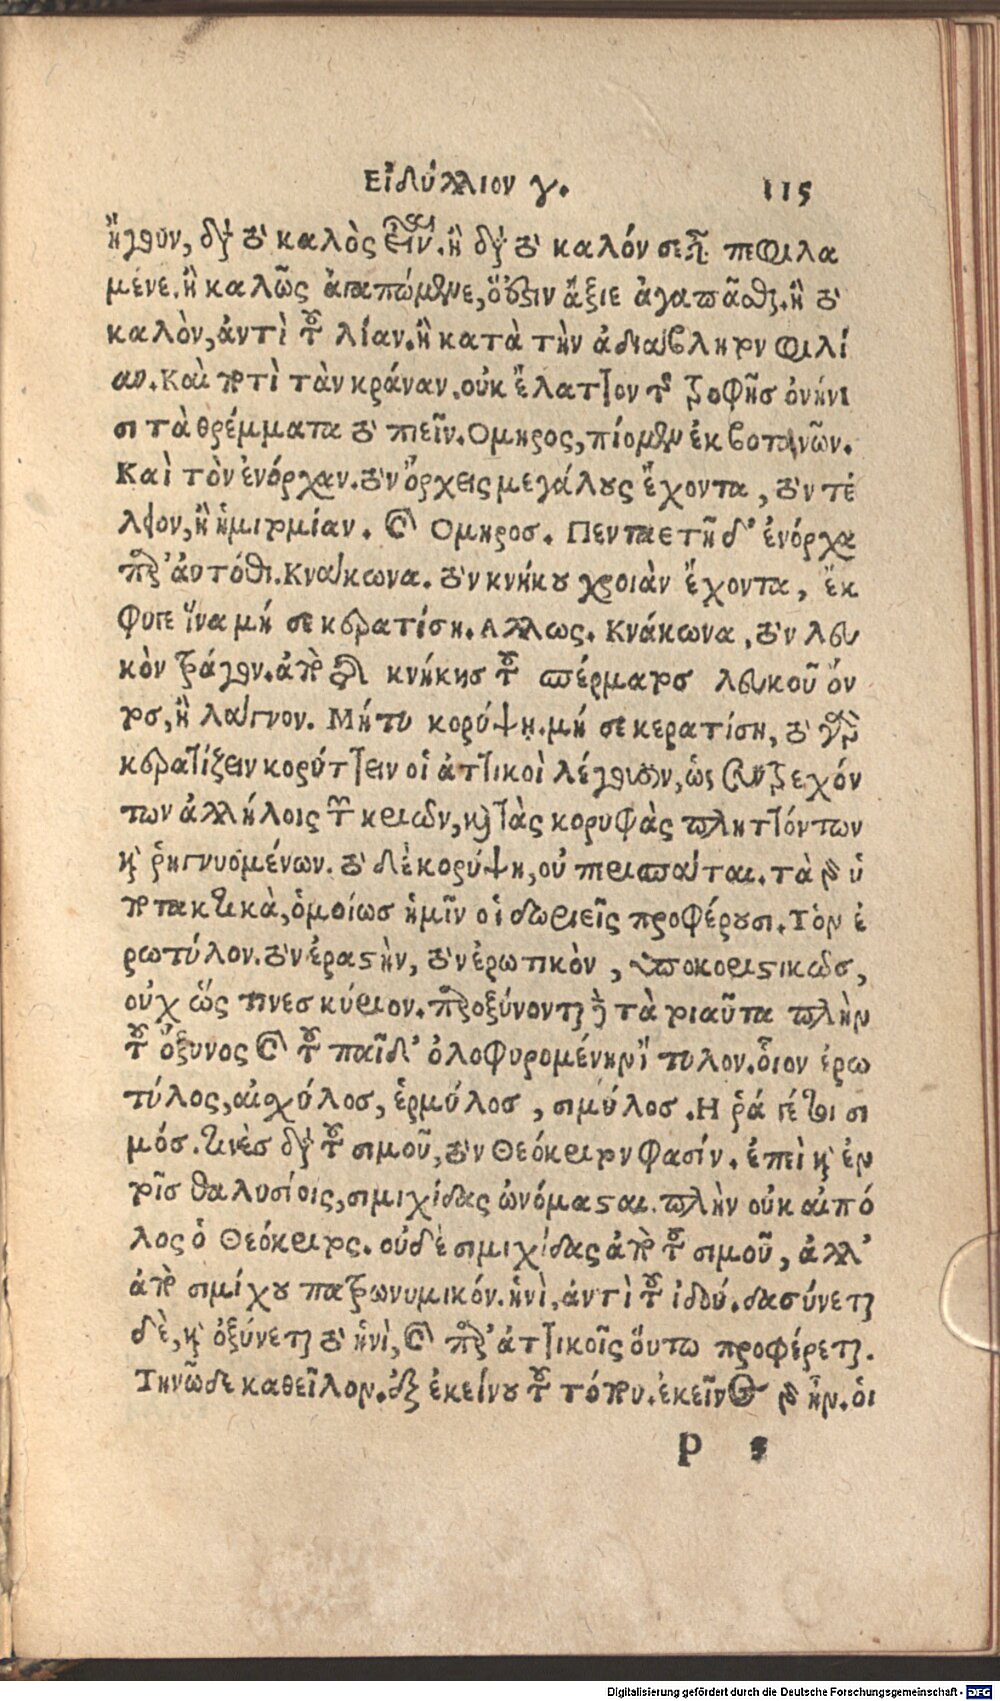 Εἰδύλλιον γ. 115
ἤγουν, διὰ τὸ καλὸς εἶναι. ἢ διὰ τὸ καλόν σε εἶναι πεφιλα
μένε. ἢ καλῶς ἀγαπώμενε, ὅ ἐστιν ἄξιε ἀγαπᾶσθαι. ἢ τὸ
καλὸν, ἀντὶ τοῦ λίαν. ἢ κατὰ τὴν ἀδιάβλητον φιλί
αν. Καὶ ποτὶ τὰν κράναν. οὐκ ἔλαττον τῆς τροφῆς ὀνήνι
σι τὰ θρέμματα τὸ πιεῖν. Ομηρος, πίομεν ἐκ βοτανῶν.
Καὶ τὸν ἐνόρχαν. τὸν ὄρχεις μεγάλους ἔχοντα, τὸν τέ
λειον, ἢ ἡμιτομίαν. καὶ Ομηρος. Πενταετῆ δ' ἐνόρχα
παρ' αὐτόθι. Κνάκωνα. τὸν κνήκου χροιὰν ἔχοντα, ἔκ
φυγε ἵνα μή σε κερατίσῃ. Αλλως. Κνάκωνα, τὸν λευ
κὸν τράγον. ἀπὸ τῆς κνήκης τοῦ σπέρματος λευκοῦ ὄν
τος, ἢ λάγνον. Μή τυ κορύψῃ. μή σε κερατίσῃ, τὸ γὰρ
κερατίζειν κορύττειν οἱ ἀττικοὶ λέγουσιν, ὡς συντρεχόν
των ἀλλήλοις τῶν κριῶν, καὶ τὰς κορυφὰς πληττόντων
καὶ ῥηγνυομένων. τὸ δὲ κορύψῃ, οὐ περισπᾶται. τὰ γὰρ ὑ
ποτακτικὰ, ὁμοίως ἡμῖν οἱ δωριεῖς προφέρουσι. Τὸν ἐ
ρωτύλον. τὸν ἐραστὴν, τὸν ἐρωτικὸν, ὑποκοριστικῶς,
οὐχ ὥς τινες κύριον. παροξύνονται γὰρ τὰ τοιαῦτα πλὴν
τοῦ ὄξυνος καὶ τοῦ παῖδ' ὀλοφυρομένην τυλον. οἷον ἐρω
τύλος, αἰσχύλος, ἑρμύλος, σιμύλος. Η ῥά γέ τοι σι
μός. τινὲς διὰ τοῦ σιμοῦ, τὸν Θεόκριτον φασίν. ἐπεὶ καὶ ἐν
τοῖς θαλυσίοις, σιμιχίδας ὠνόμασται. πλὴν οὐκ αἰπό
λος ὁ Θεόκριτος. οὐδὲ σιμιχίδας ἀπὸ τοῦ σιμοῦ, ἀλλ'
ἀπὸ σιμίχου πατρωνυμικόν. ἡνὶ, ἀντὶ τοῦ ἰδού. δασύνεται
δὲ, καὶ ὀξύνεται τὸ ἡνὶ, καὶ παρ' ἀττικοῖς οὕτω προφέρεται.
Τηνῶδε καθεῖλον. ἐξ ἐκείνου τοῦ τόπου. ἐκεῖνος γὰρ ἦν. οἱ
P 5
Digitalisierung gefördert durch die Deutsche Forschungsgemeinschaft - DFG